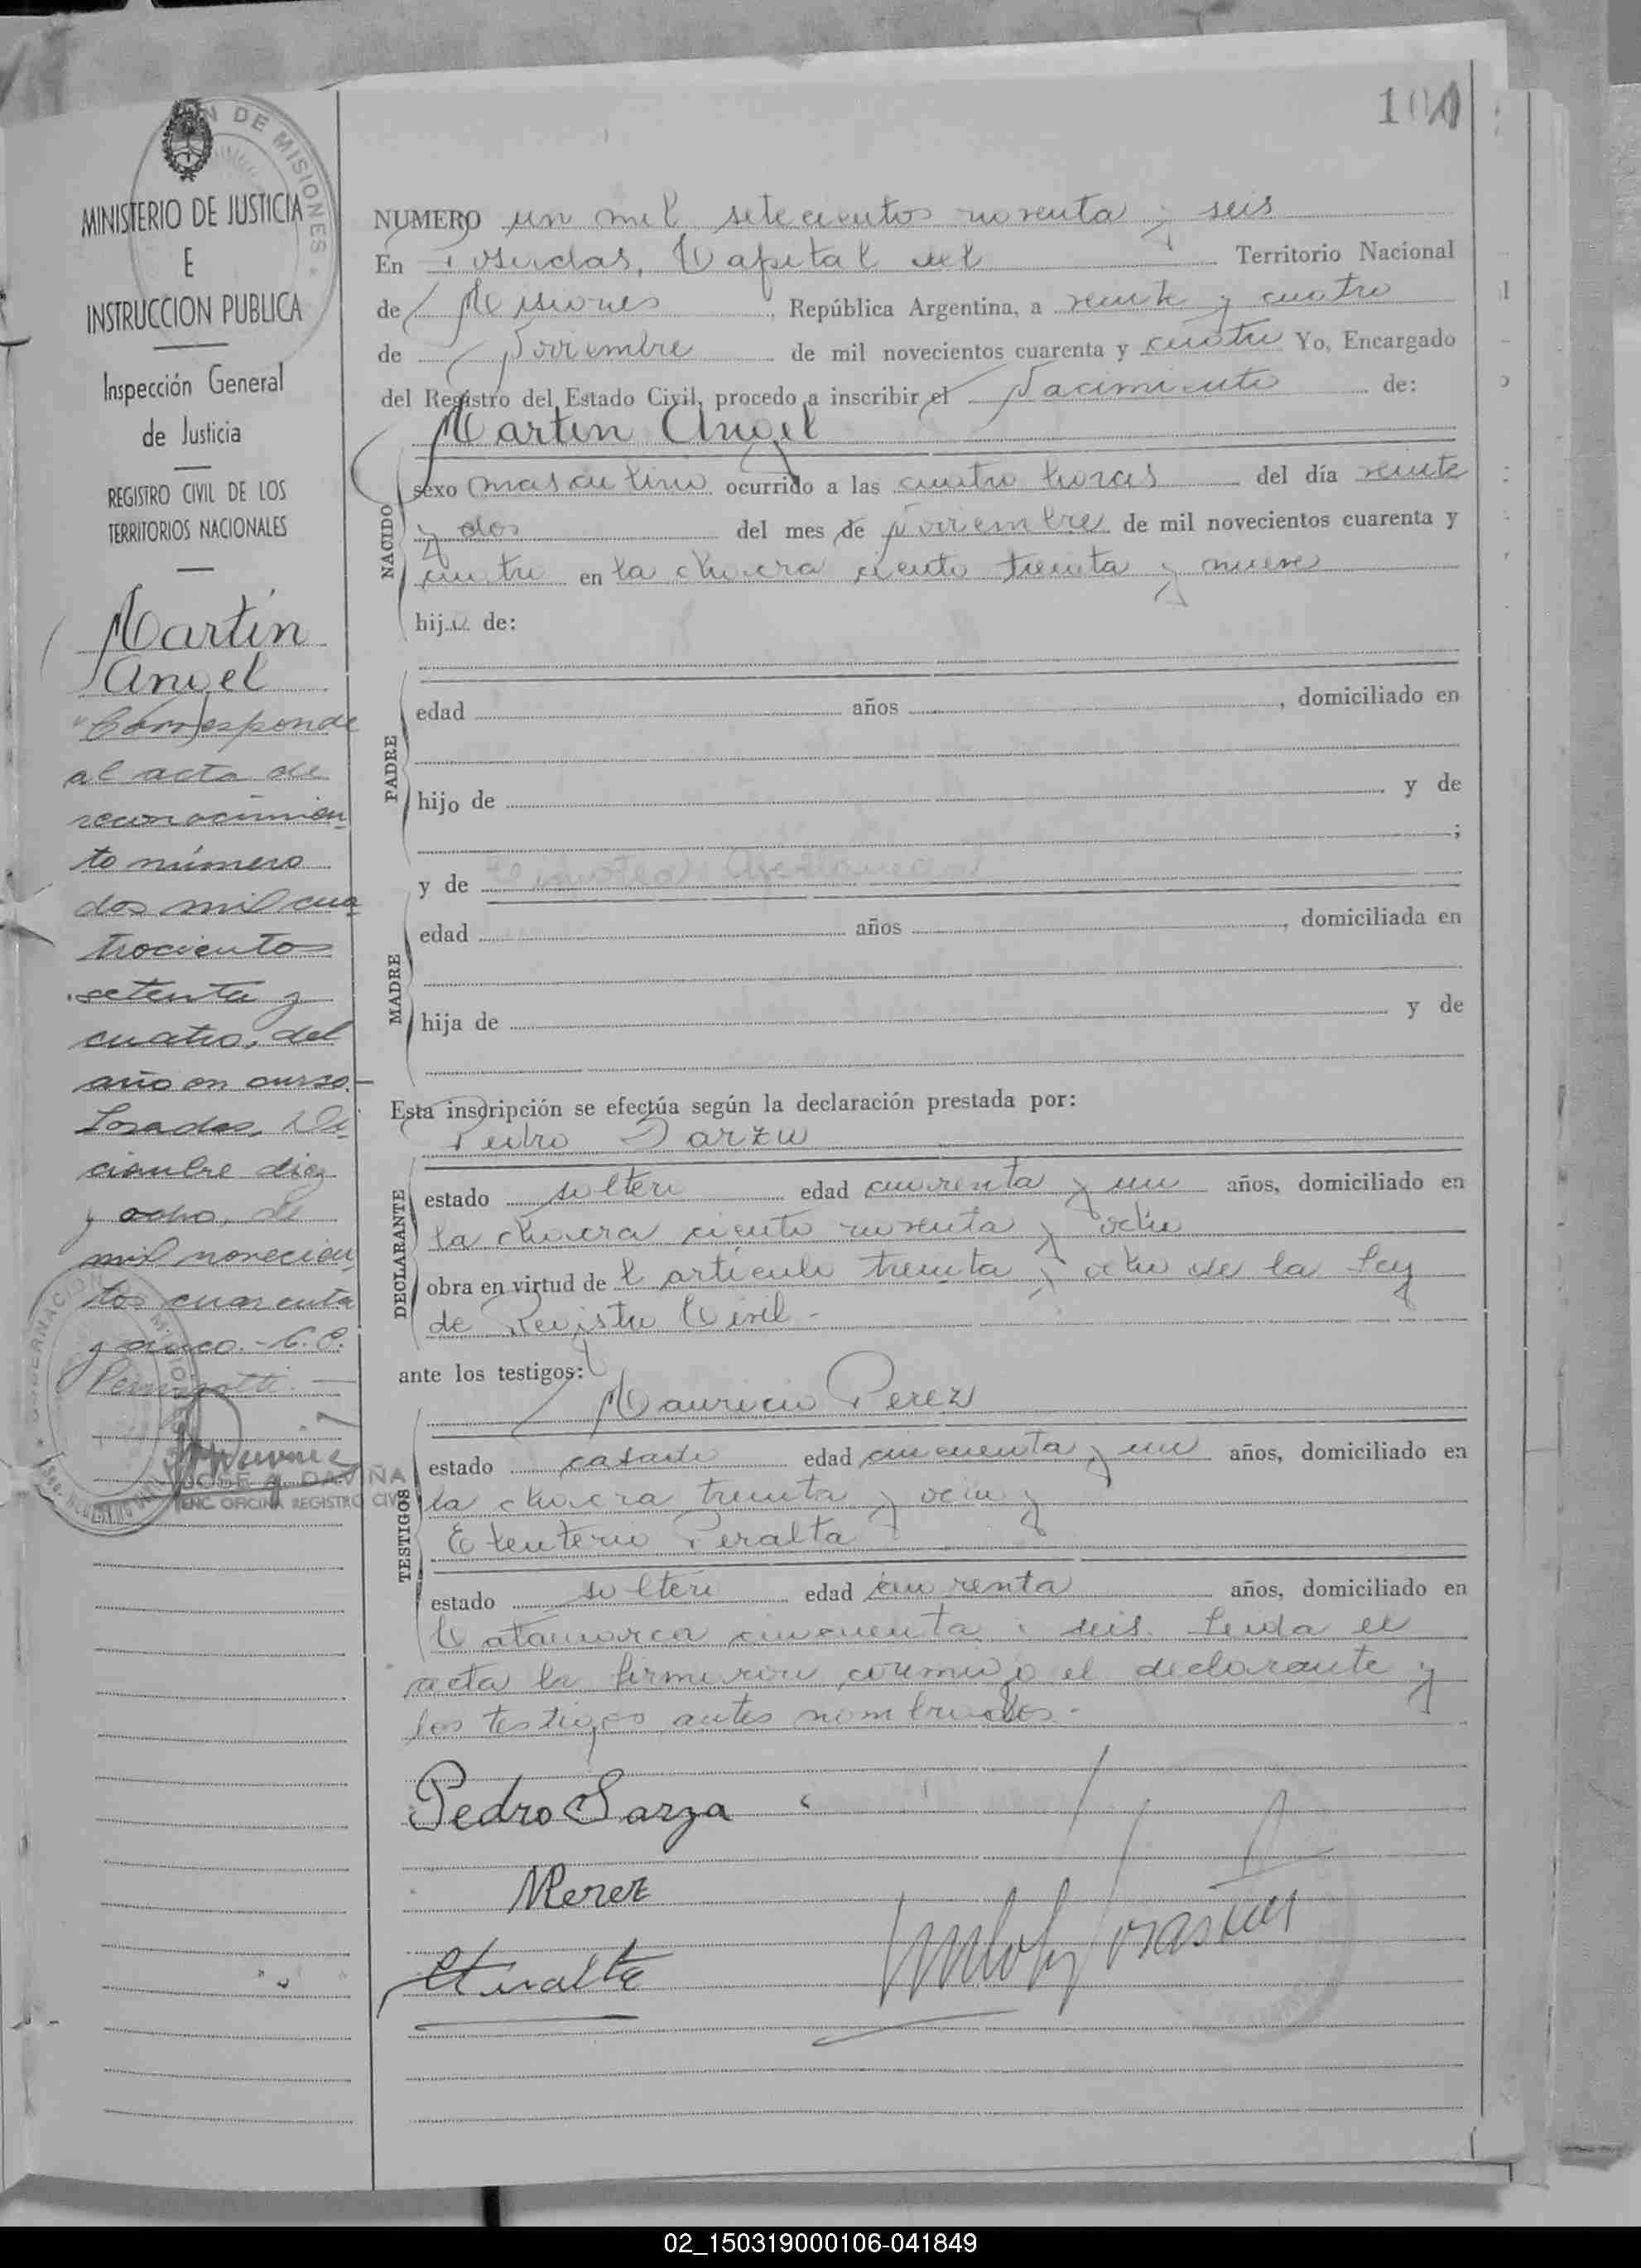 100
N DE MISIONES
MINISTERIO DE JUSTICIA
E
INSTRUCCION PUBLICA
Inspección General
de Justicia
REGISTRO CIVIL DE LOS
TERRITORIOS NACIONALES
Martín
Angel
Corresponde
al acta de
reconocimien
to número
dos mil cua
trocientos
setenta y
cuatro, del
año en curso.
Posadas, Di
ciembre diez
y ocho, de
mil novecien
tos cuarenta
y cinco.-
JOSE DAVIÑA
ENC. OFICINA REGISTRO CIVIL
NUMERO un mil setecientos noventa y seis
En Posadas, Capital del Territorio Nacional
de Misiones, República Argentina, a veinte y cuatro
de Noviembre de mil novecientos cuarenta y cuatro Yo, Encargado
del Registro del Estado Civil, procedo a inscribir el Nacimiento de:
Martin Angel
NACIDO
sexo masculino ocurrido a las cuatro horas del día veinte
y dos del mes de Noviembre de mil novecientos cuarenta y
cuatro en la chacra ciento treinta y nueve
hijo de:
PADRE
edad años , domiciliado en
hijo de y de
;
y de
MADRE
edad años , domiciliada en
hija de y de
Esta inscripción se efectúa según la declaración prestada por:
Pedro Sarza
DECLARANTE
estado soltero edad cuarenta y un años, domiciliado en
la chacra ciento noventa y ocho
obra en virtud del artículo treinta y ocho de la Ley
de Registro Civil -
ante los testigos:
Mauricio Perez
TESTIGOS
estado casado edad cincuenta y un años, domiciliado en
la chacra treinta y ocho y
Eleuterio Peralta
estado soltero edad cuarenta años, domiciliado en
Catamarca cincuenta y seis. Leida el
acta la firmaron conmigo el declarante y
los testigos antes nombrados.-
Pedro Sarza
MPerez
EPeralta
02_150319000106-041849